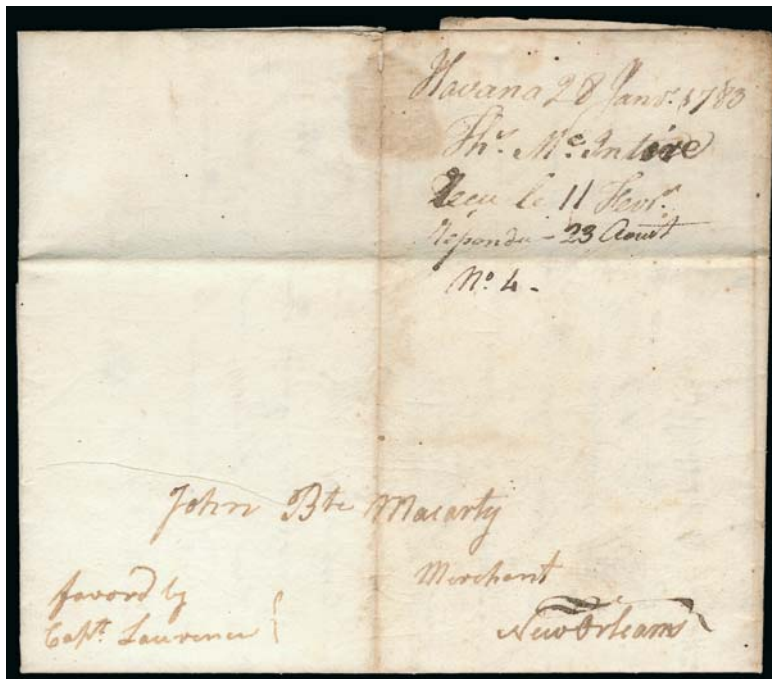 Havana 28 Janv. 1783
Ths. Mc. Intire
Reçu le 11 Fevr.
Répondu - 23 Aoust
No. 4 -
John Bte Macarty
Merchant
New Orleans
favord by
Capt. Laurence